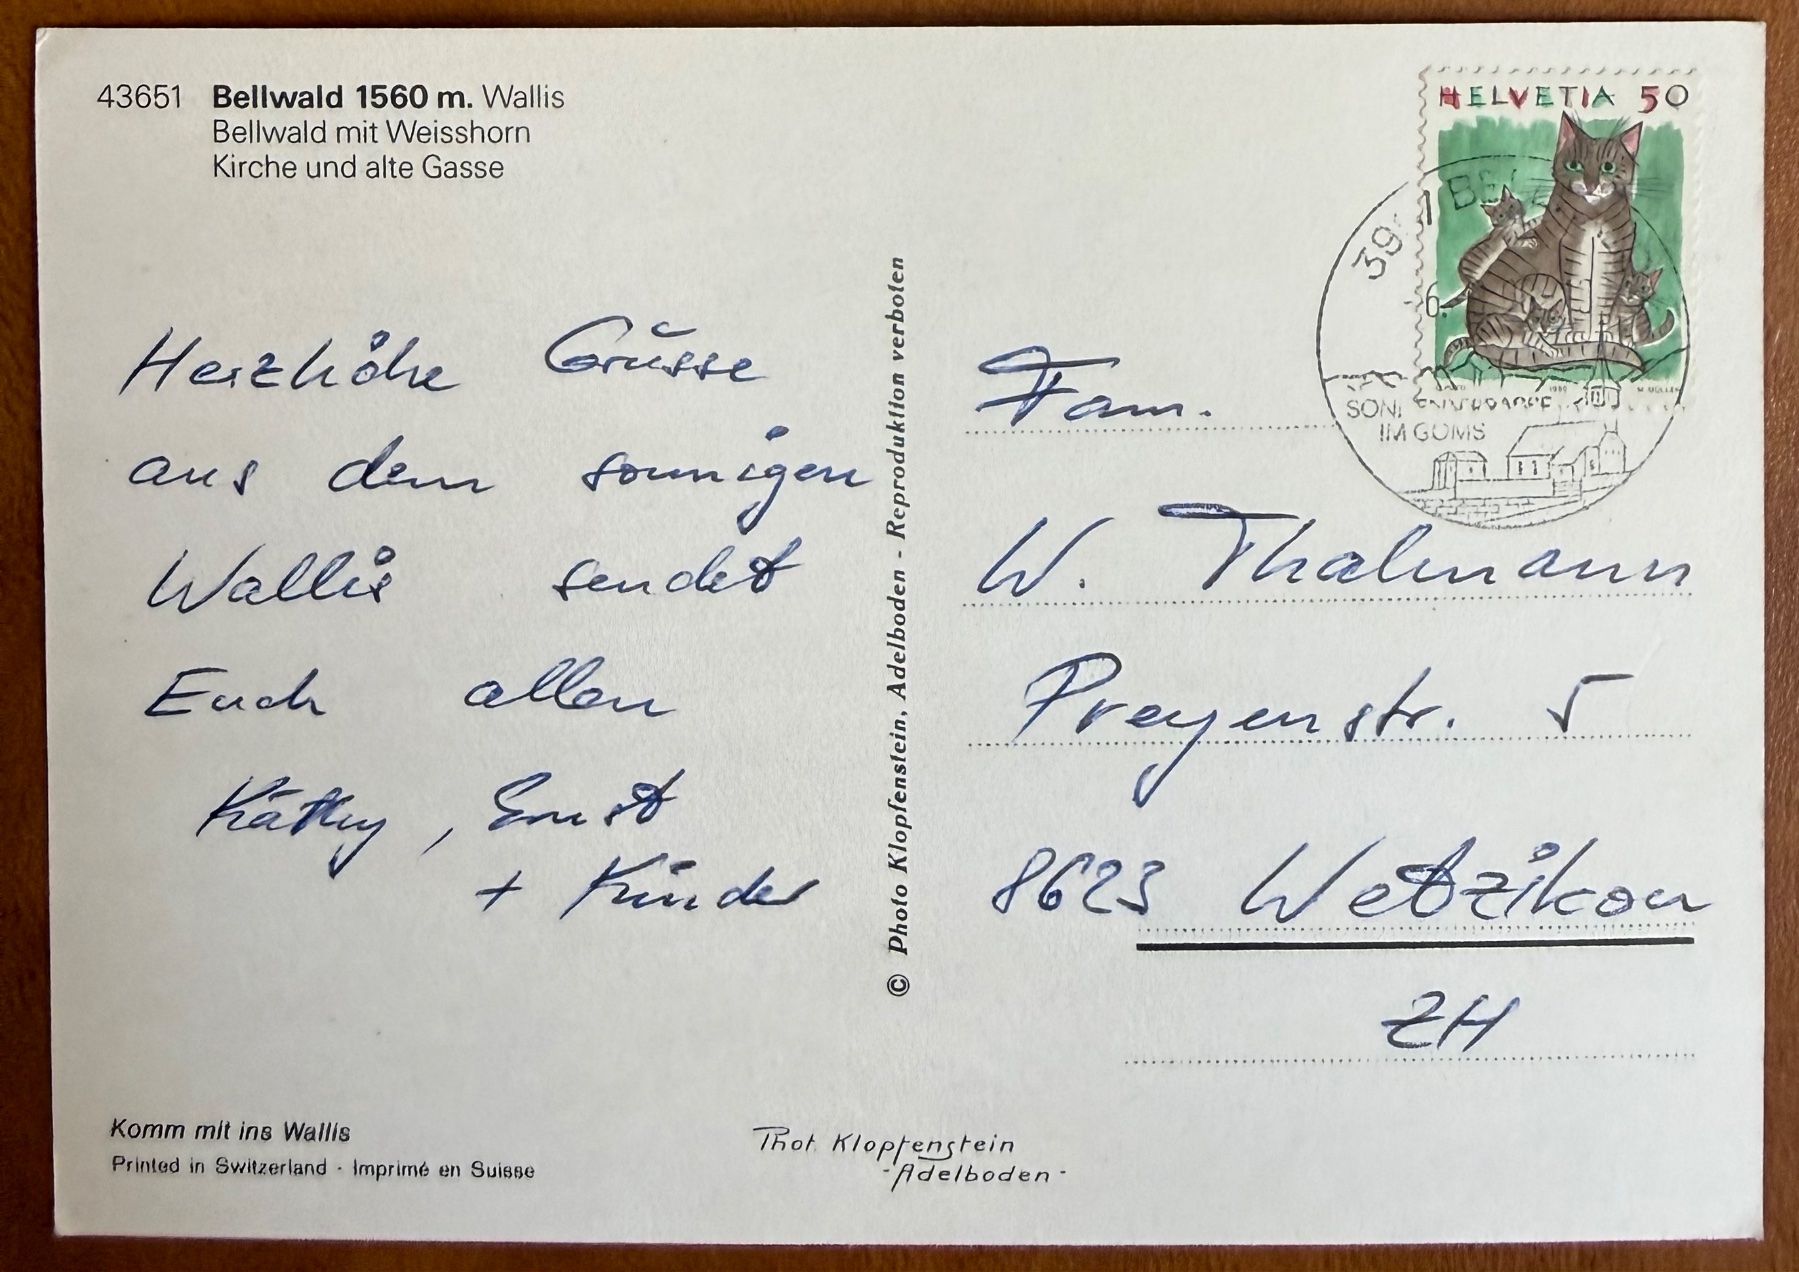 43651 Bellwald 1560 m. Wallis
Bellwald mit Weisshorn
Kirche und alte Gasse
HELVETIA 50
6.
IM GOMS
Herzliche Grüsse
aus dem sonnigen
Wallis sendet
Euch allen
Käthy, Ernst
+ Kinder
© Photo Klopfenstein, Adelboden - Reproduktion verboten
Fam.
W. Thalmann
Preyenstr. 5
8623 Wetzikon
ZH
Komm mit ins Wallis
Printed in Switzerland · Imprimé en Suisse
Phot. Klopfenstein
- Adelboden -